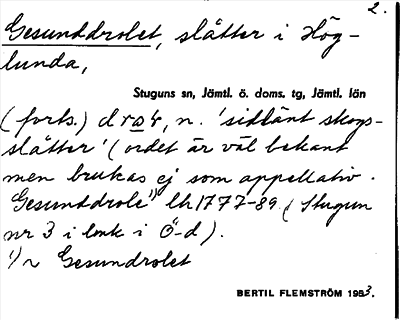 2.
Gesunddrolet, slåtter i Hög-
lunda,
Stuguns sn, Jämtl. ö. doms. tg, Jämtl. län
(forts.) dro̲l, n. 'sidlänt skogs-
slåtter' (ordet är väl bekant
men brukas ej som appellativ.
"Gesunddrole"¹) lh 1777-89 (Stugun
nr 3 i lmk i Ö-d).
¹) r Gesundrolet
BERTIL FLEMSTRÖM 1953.